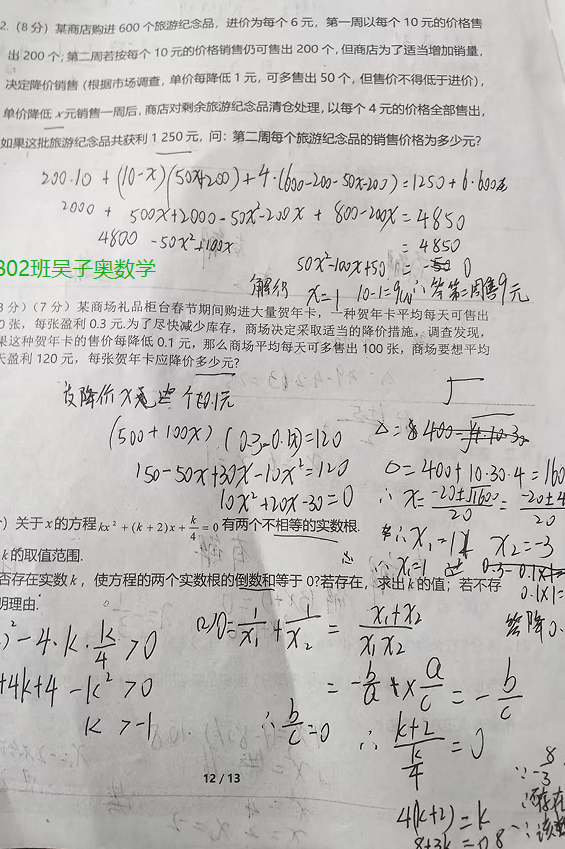 2.（8分）某商店购进600个旅游纪念品，进价为每个6元，第一周以每个10元的价格售
出200个；第二周若按每个10元的价格销售仍可售出200个，但商店为了适当增加销量，
决定降价销售（根据市场调查，单价每降低1元，可多售出50个，但售价不得低于进价），
单价降低x元销售一周后，商店对剩余旅游纪念品清仓处理，以每个4元的价格全部售出，
如果这批旅游纪念品共获利1 250元，问：第二周每个旅游纪念品的销售价格为多少元？
200·10+(10-x)(50x+200)+4·(600-200-50x-200)=1250+6·600
2000+500x+2000-50x²-200x+800-200x=4850
4800-50x²+100x =4850
50x²-100x+50=0
802班吴子奥数学
解得 x=1 10-1=9 ∴答第二周售9元
8分）（7分）某商场礼品柜台春节期间购进大量贺年卡，一种贺年卡平均每天可售出
0张，每张盈利0.3元.为了尽快减少库存，商场决定采取适当的降价措施，调查发现，
果这种贺年卡的售价每降低0.1元，那么商场平均每天可多售出100张，商场要想平均
天盈利120元，每张贺年卡应降价多少元？
设降价x 个0.1元
(500+100x)(0.3-0.1x)=120
150-50x+30x-10x²=120
10x²+20x-30=0
Δ=400+10·30·4=160
∴x=-20±√1600/20=-20±4/20
∴x₁=1 x₂=-3
∴x₁=1
0.1x1=
答降0.
）关于x的方程kx²+(k+2)x+k/4=0有两个不相等的实数根.
k的取值范围.
否存在实数k，使方程的两个实数根的倒数和等于0?若存在，求出k的值；若不存
明理由.
)²-4·k·k/4>0
+4k+4-k²>0
k>-1
(2)0=1/x₁+1/x₂=x₁+x₂/x₁x₂
=-b/a×a/c=-b/c
∴b/c=0 ∴k+2/k/4=0
4(k+2)=k
8+3k=0
12 / 13